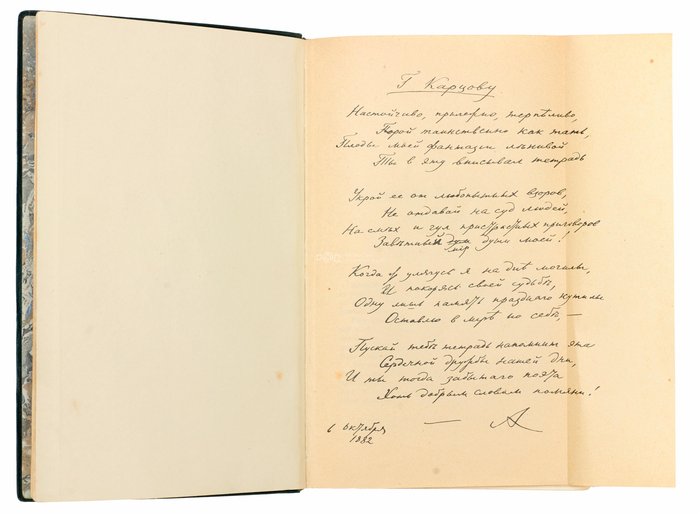 Г. Карцову.
Настойчиво, прилежно, терпѣливо,
Порой таинственно какъ тать,
Плоды моей фантазіи лѣнивой
Ты в эту вписывал тетрадь
Укрой ее от любопытных взоров,
Не отдавай на суд людей,
На смѣх и гул пристрастных приговоров
Завѣтный мiр души моей!
Когда улягусь я на днѣ могилы,
И покорясь своей судьбѣ,
Одну лишь память праздного кутилы
Оставлю в мiрѣ по себѣ, —
Пускай тебѣ тетрадь напомнит эта
Сердечной дружбы нашей дни,
И ты тогда забытаго поэта
Хоть добрым словом помяни!
6 октября
1882
— А